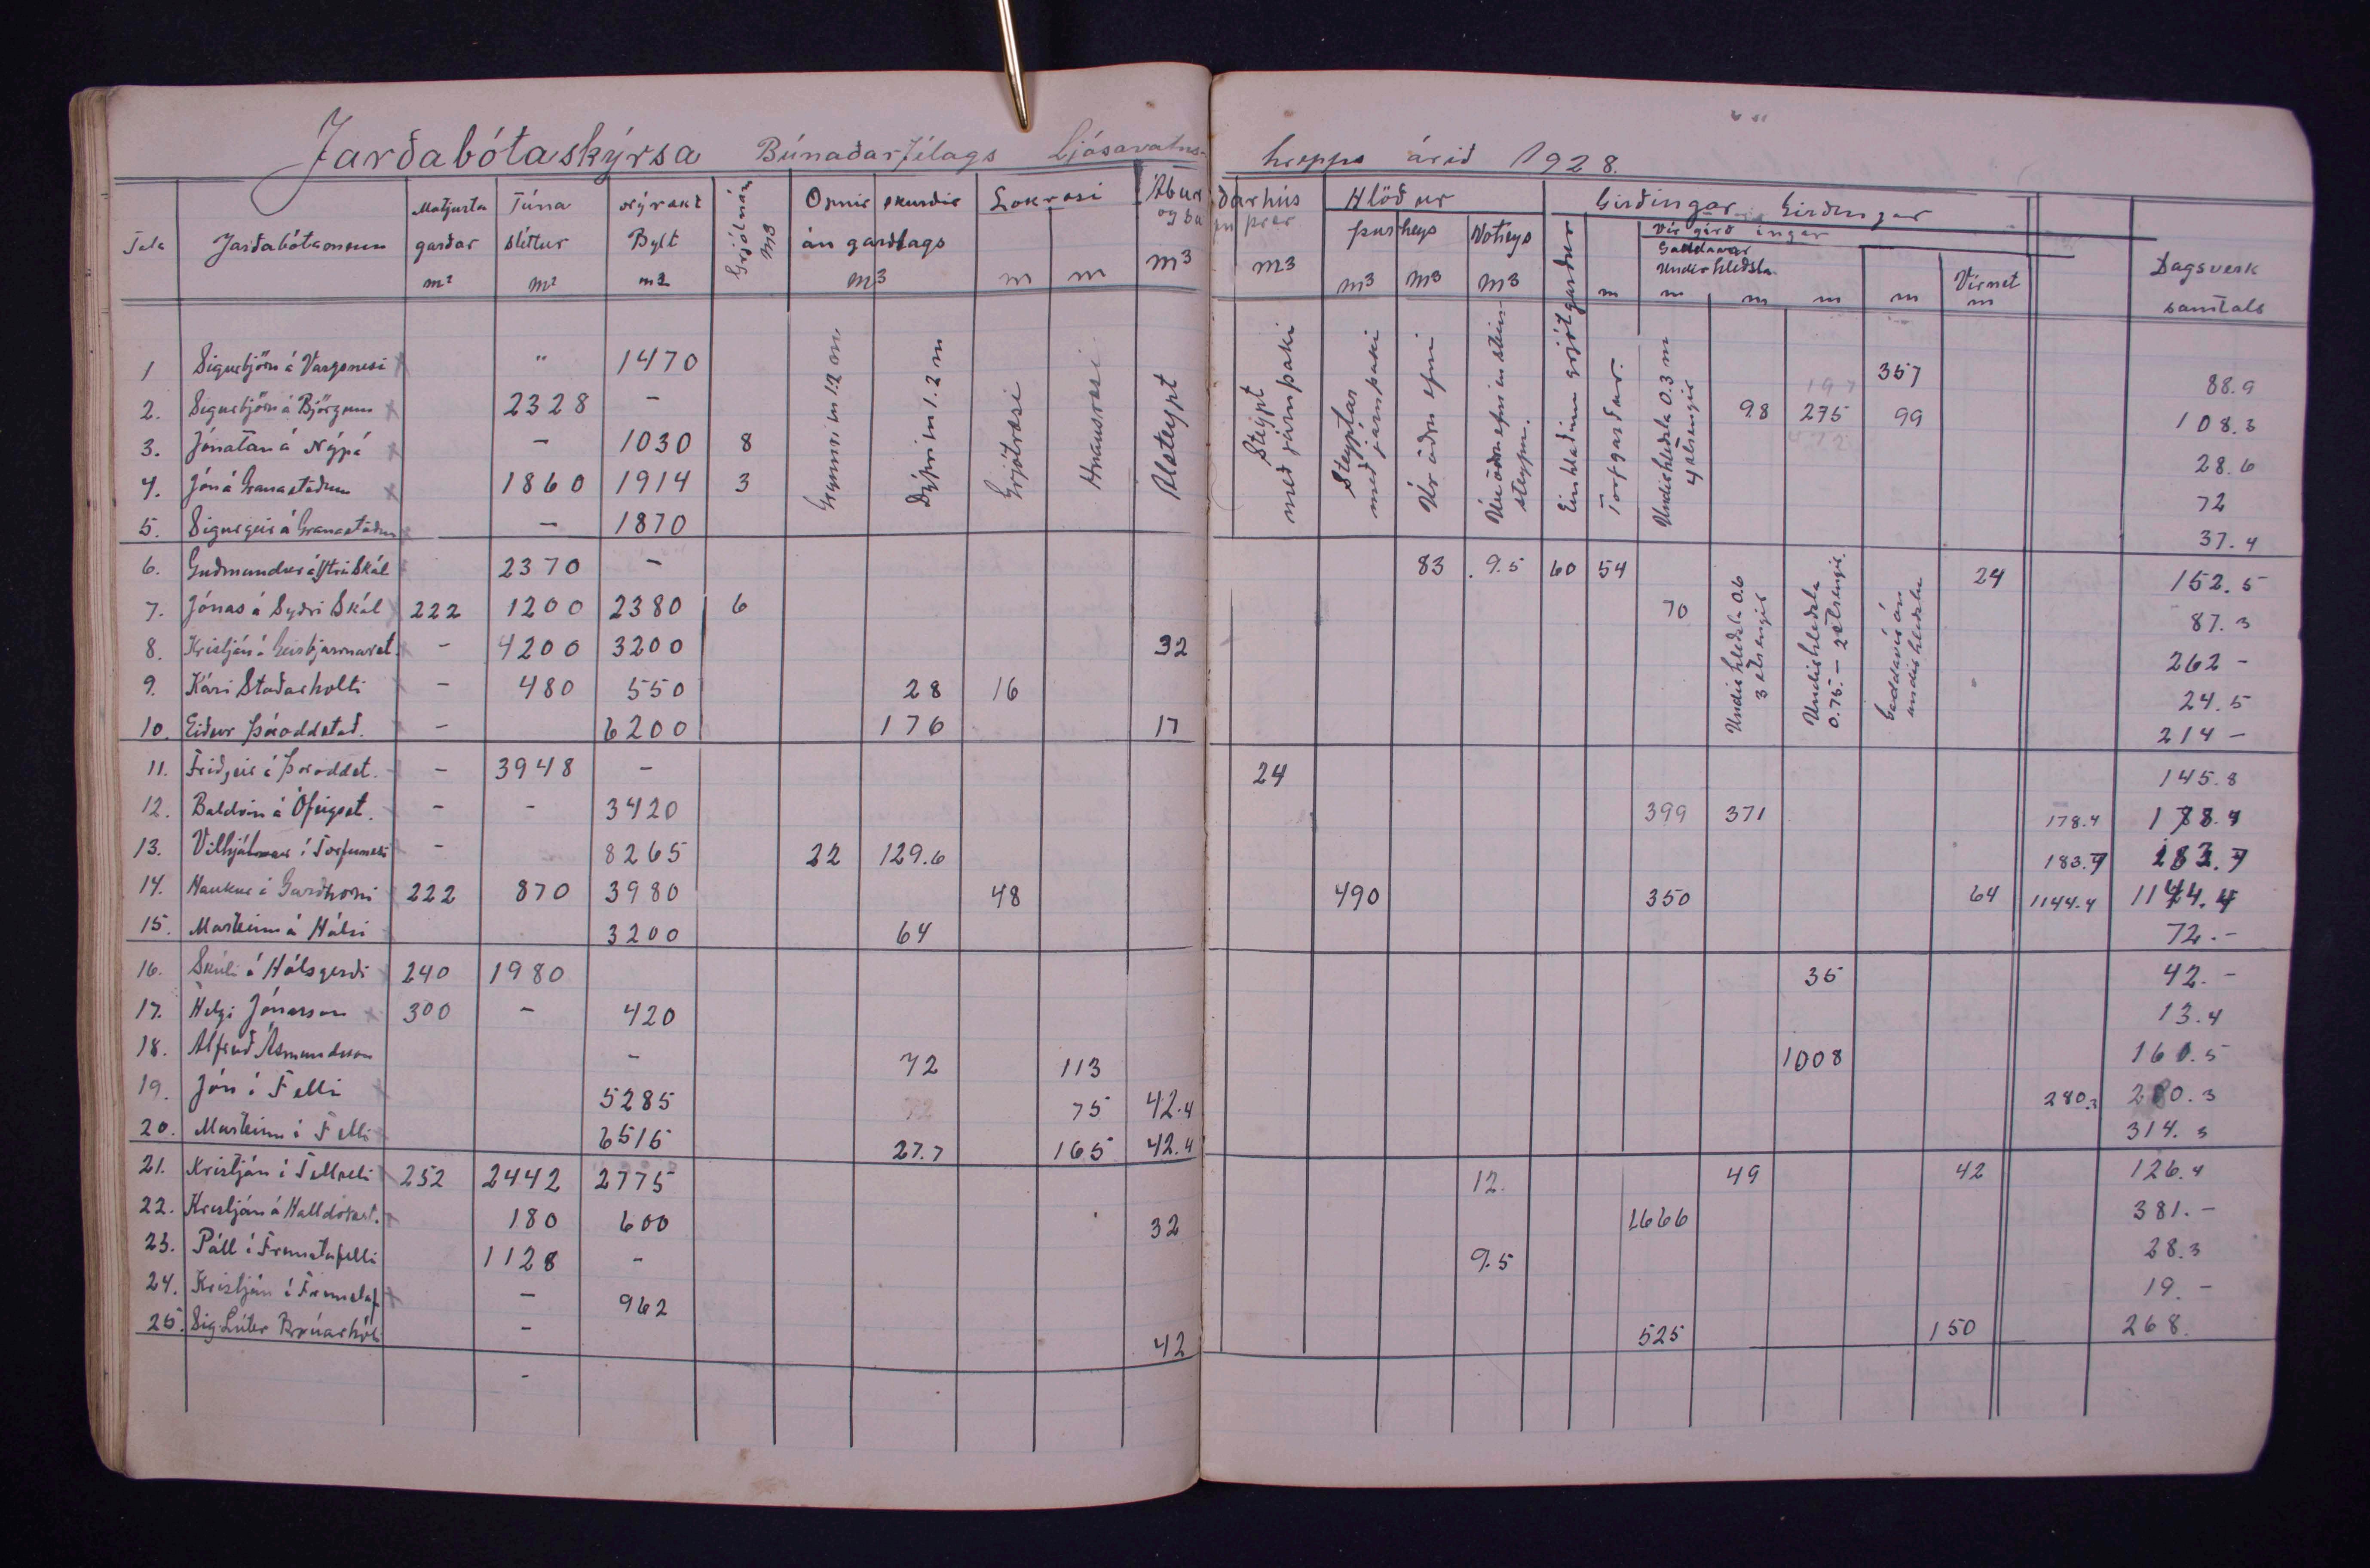 Jarðabótaskýrsa Búnaðarfélags Ljósavatns- hrepps árið 1928.
Tala Jarðabótamenn Matjurta garðar m² Túna sléttur m² Nýrækt Bylt m2 Grjótnám m3 Opnir skurðir án garðlags m3 Lokræsi m m Áburðarhús og þr m3 m3 Hlöður þurheys m3 m3 Votheys m3 Girðingar Girðingar Vír girð ingar Gaddavír Undirhleðsla m m m m m Virnet m Dagsverk samtals
Grynnri en 1.2 m Dýpri en 1.2 m Grjótræsi Hnausræsi Alsteypt Steypt með járnþaki Steyptar með járnþaki Úr öðru efni Úr öðru efni en steinsteypu. Einhlaðinn grjótgarður Torfgarður. Undirhleðsla 0.3 m 4 strengir
Undirhleðsla 0.6 3 strengir Undirhleðsla 0.75 - 2 strengir. Gaddavír án undirhleðslu
1 Sigurbjörn á Vargsnesi " 1470 357 88.9
2. Sigurbjörn á Björgum 2328 - 98 275 99 108.3
3. Jónatan á Nýpá - 1030 8 28.6
4. Jón á Granastöðum 1860 1914 3 72
5. Sigurgeir á Granastöðum - 1870 37.4
6. Guðmundur á Ytri Skál 2370 - 83 9.5 60 54 24 152.5
7. Jónas á Syðri Skál 222 1200 2380 6 70 87.3
8. Kristján á Geirbjarnarst. - 4200 3200 32 262 -
9. Kári Staðarholti - 480 550 28 16 24.5
10. Eiður Þóroddstað. - 6200 176 17 214 -
11. Friðgeir á Þóroddst. - 3948 - 24 145.8
12. Baldvin á Ófeigsst. - - 3420 399 371 178.4 178.4
13. Vilhjálmur í Torfunesi - 8265 22 129.6 183.7 183.7
14. Haukur í Garðhorni 222 870 3980 48 490 350 64 1144.4 1144.4
15. Marteinn á Hálsi 3200 64 72.-
16. Skúli á Hálsgerði 240 1980 35 42.-
17. Helgi Jónasson 300 - 420 13.4
18. Alfreð Ásmundsson - 72 113 1008 160.5
19. Jón í Felli 5285 75 42.4 280.3 280.3
20. Marteinn í Felli 6515 27.7 165 42.4 314.3
21. Kristján í Fellseli 252 2442 2775 12. 49 42 126.4
22. Kristján á Halldórsst. 180 600 32 1666 381.-
23. Páll í Fremstafelli 1128 - 9.5 28.3
24. Kristján í Fremstaf. - 962 19.-
25. Sig Lúter Brúarhóli - 42 525 150 268.
-